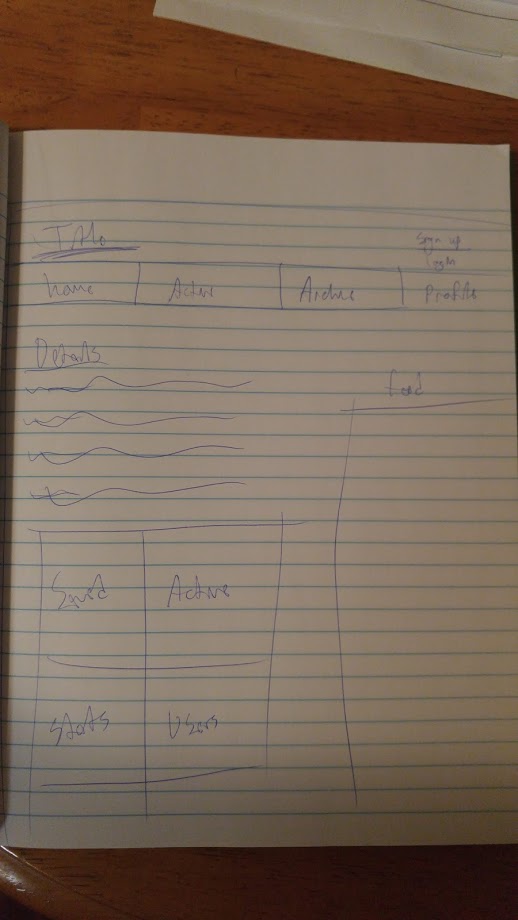 Sign up
Login
home Active Archive Profile
Details
feed
Saved Active
Stats Users